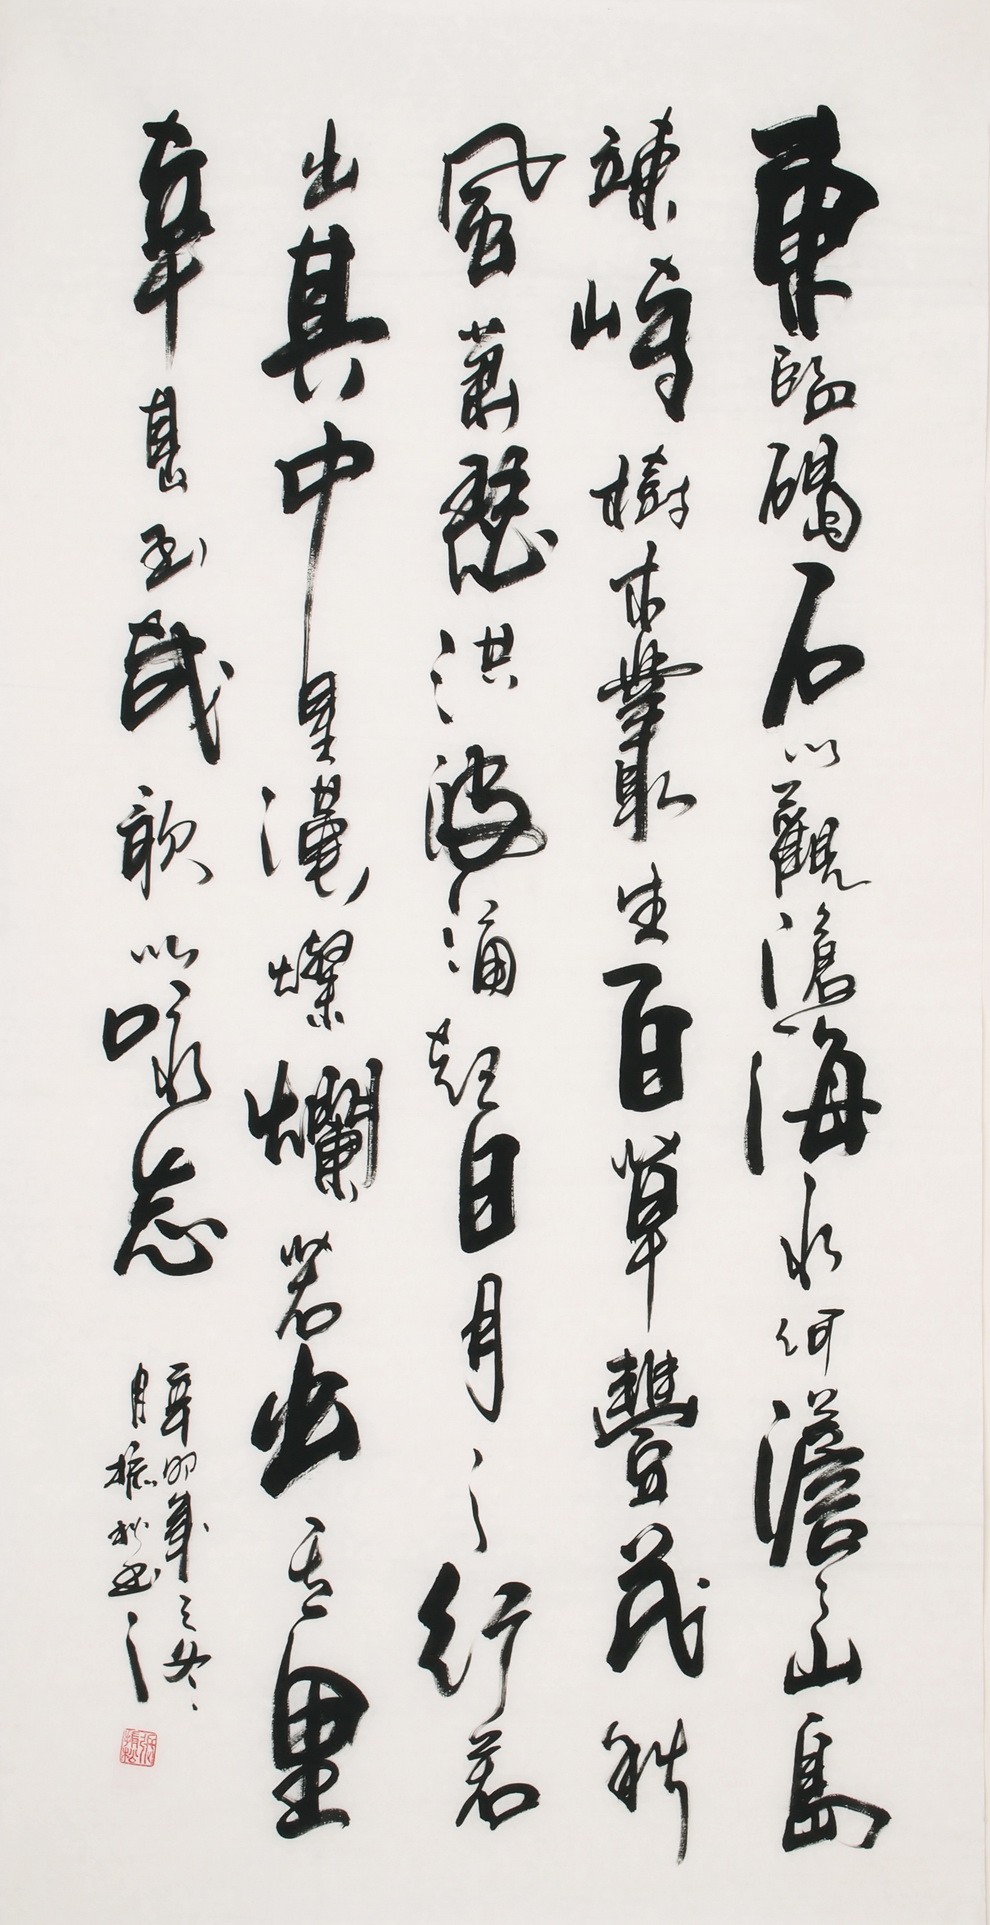 東臨碣石以觀滄海水何澹々山島
竦峙樹木叢生百草豐茂秋
風蕭瑟洪波涌起日月之行若
出其中星漢燦爛若出其里
幸甚至哉歌以咏志
辛卯年之冬
月振秋書之